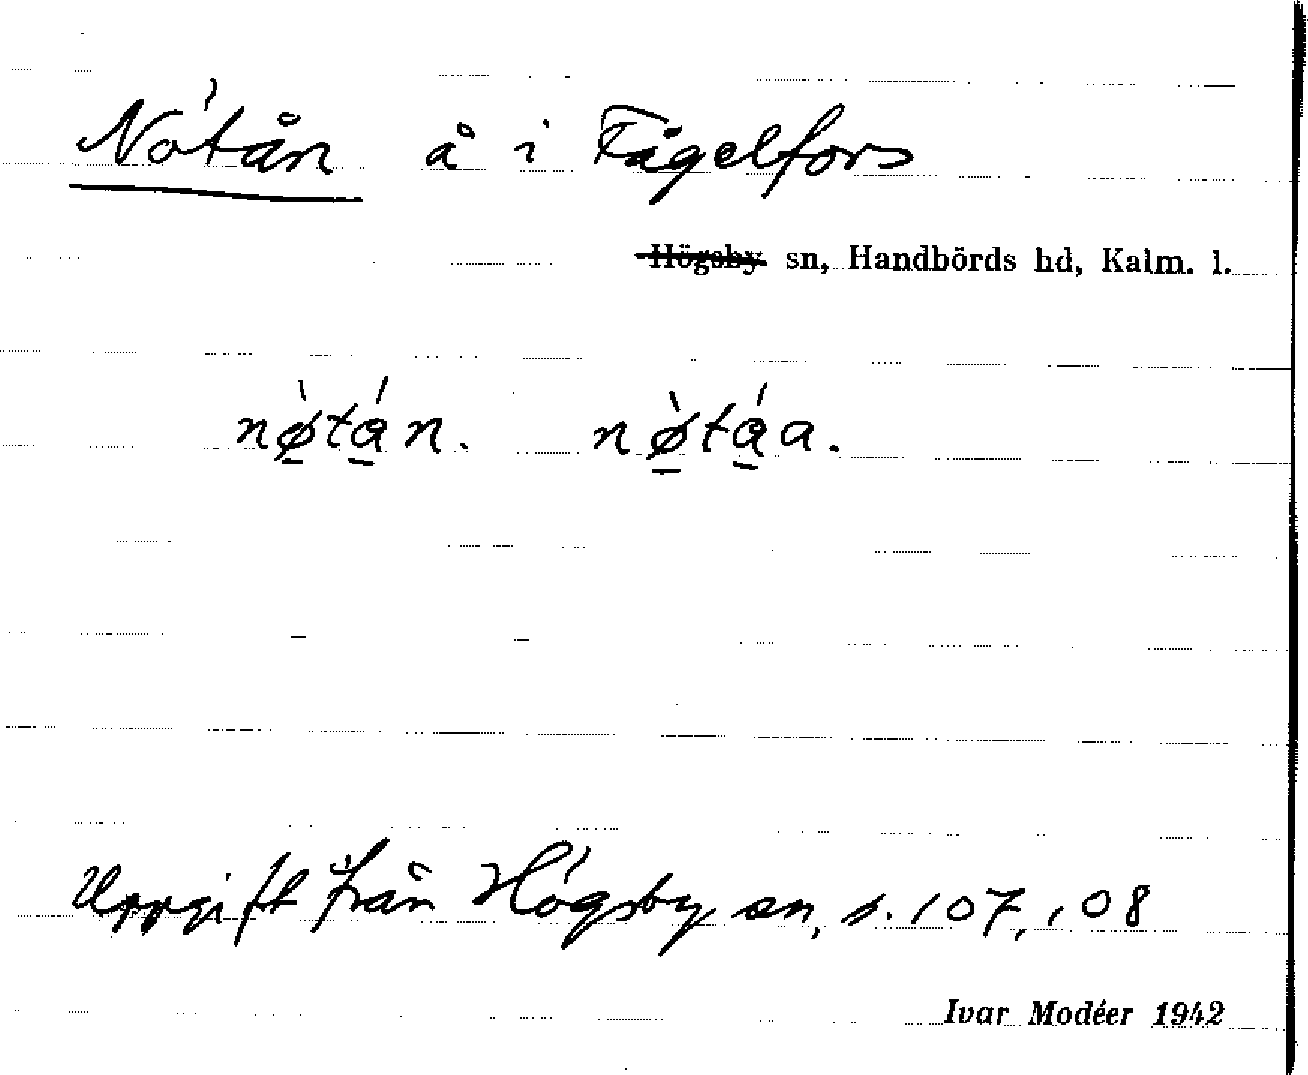 Nötån å i Fågelfors
Högsby sn, Handbörds hd, Kalm. l.
nø̀tán. nø̀táa.
Uppgift från Högsby sn, s. 107, 108
Ivar Modéer 1942